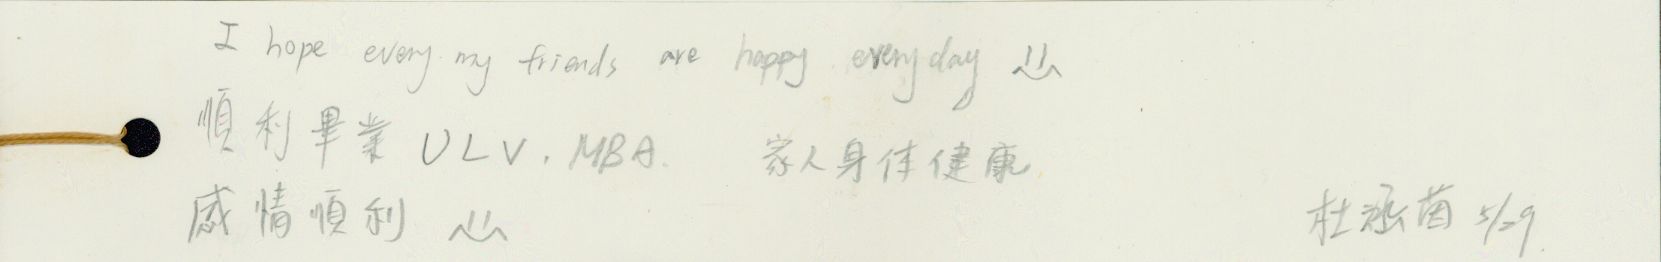 I hope every my friends are happy everyday
順利畢業 ULV. MBA. 家人身体健康
感情順利
杜涵茵 5/29